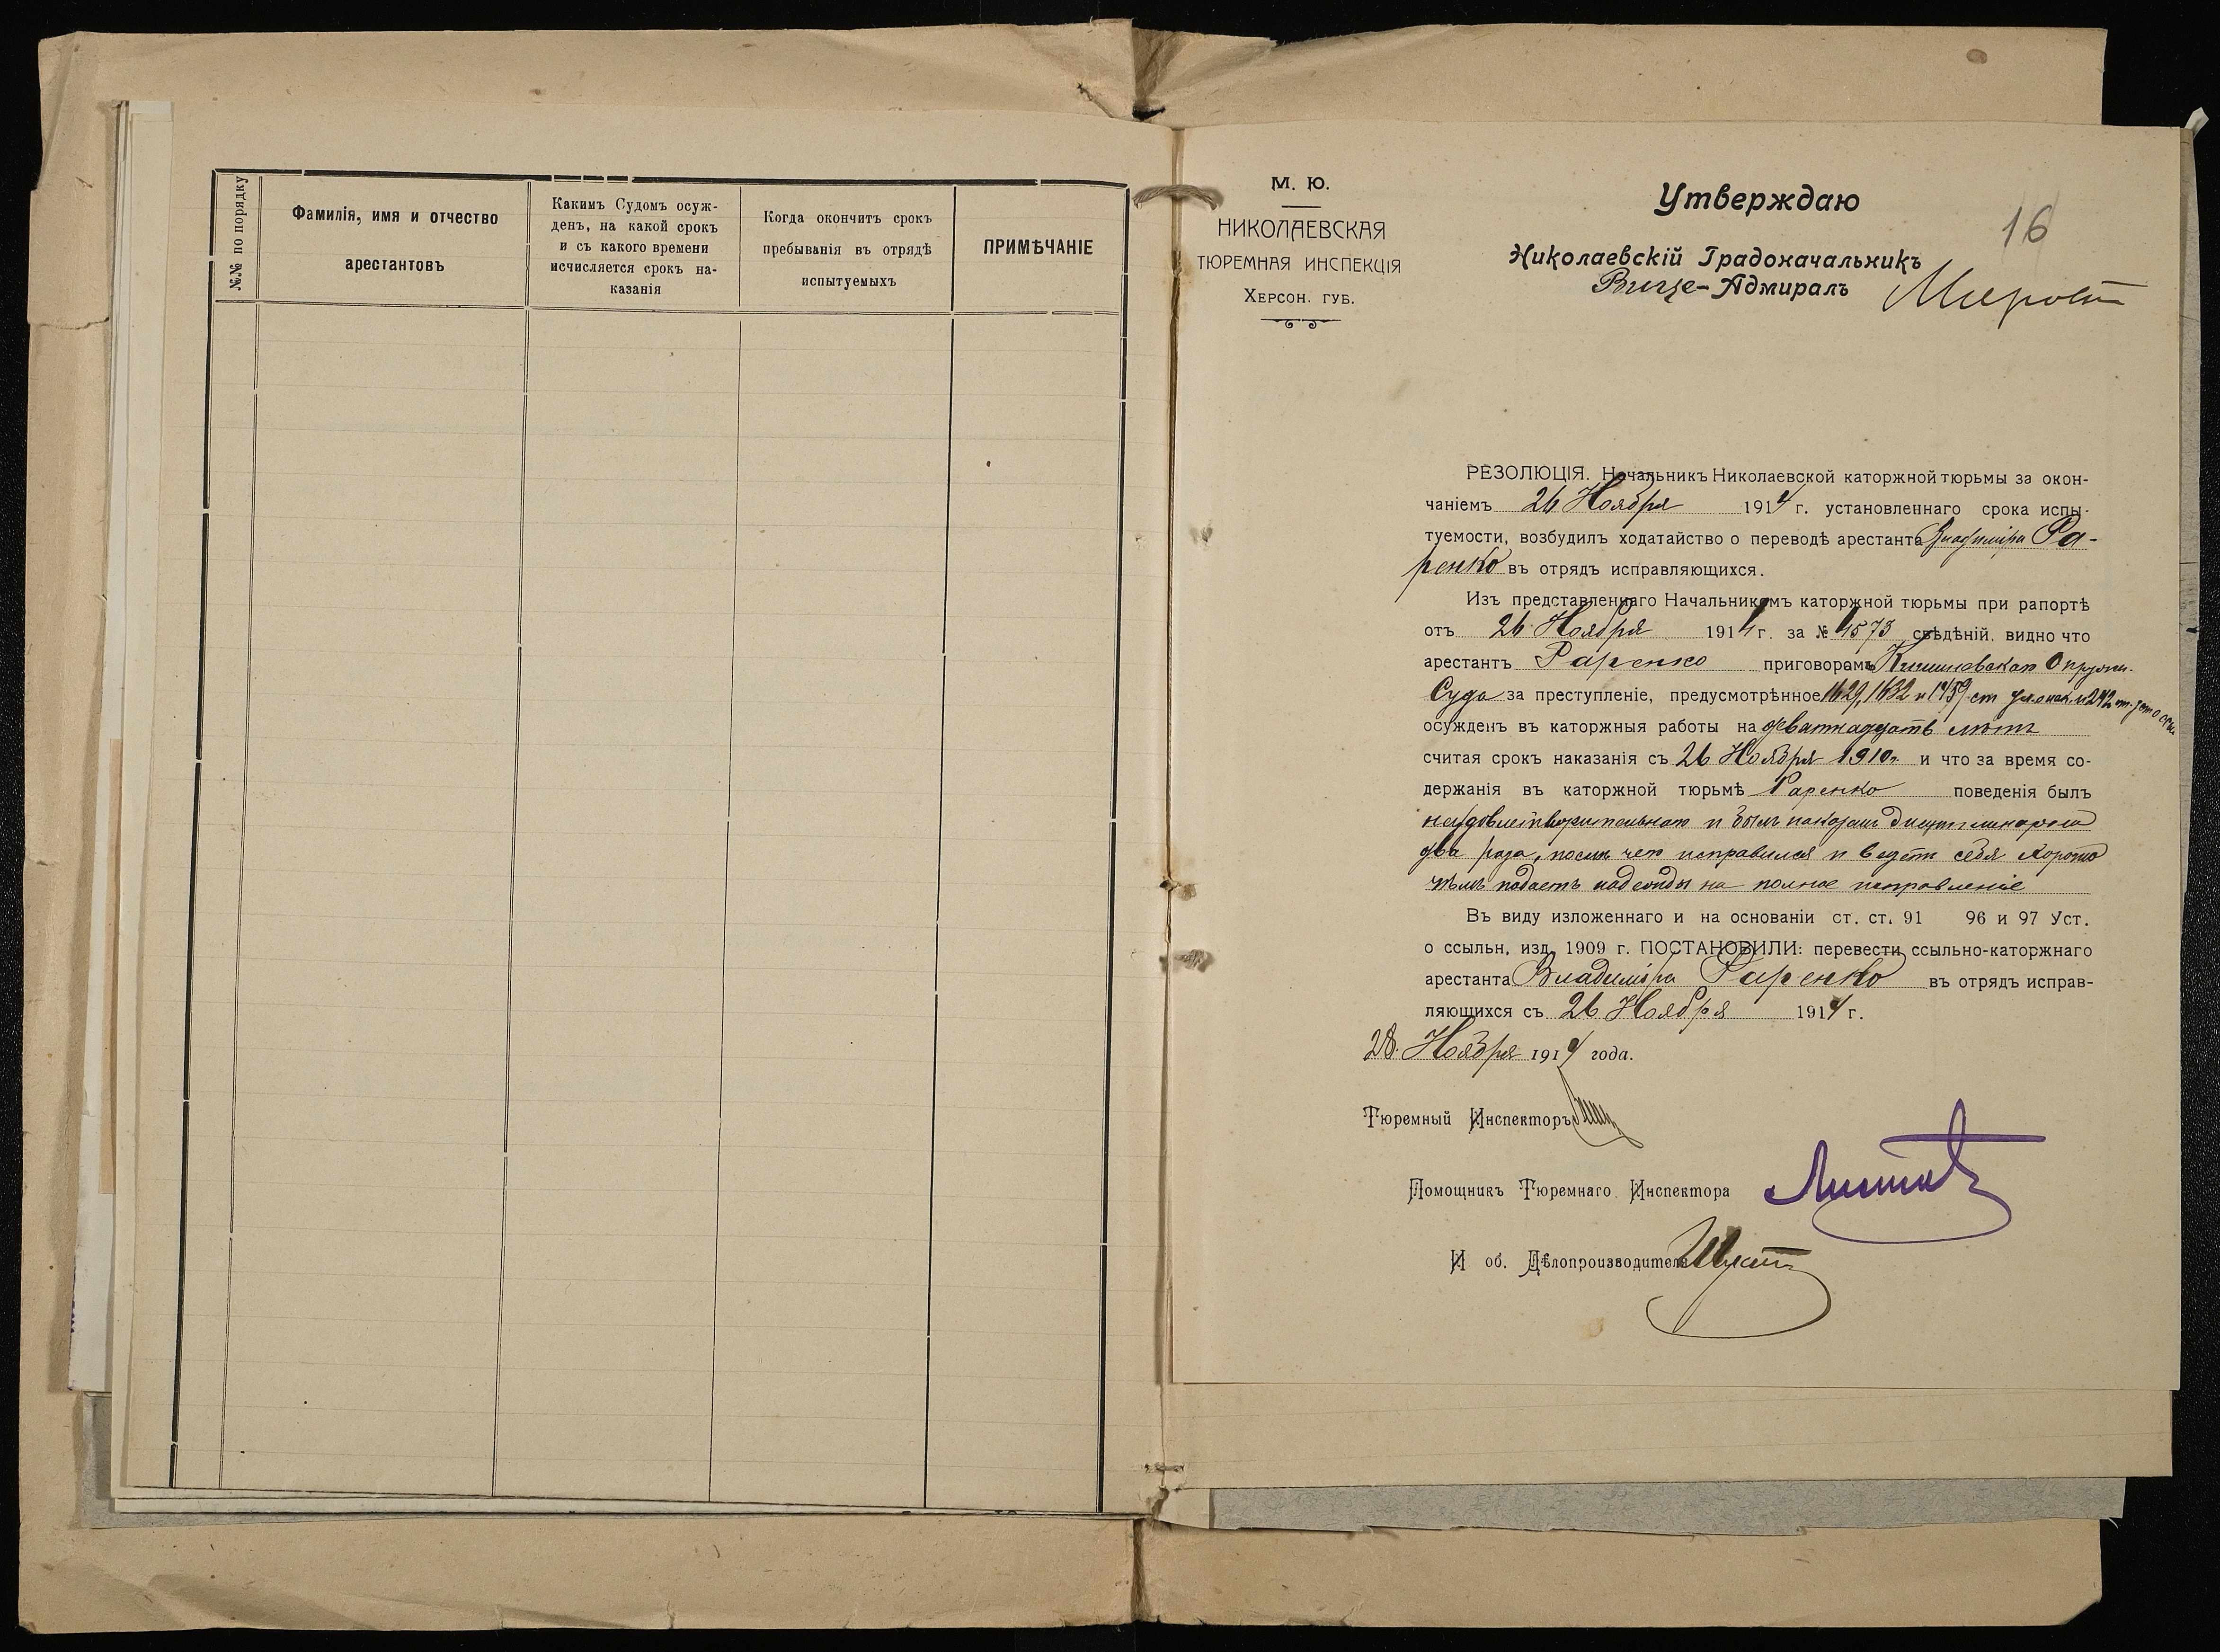 №№ по порядку
Фамилія, имя и отчество
арестантовъ
Какимъ Судомъ осуж-
денъ, на какой срокъ
и съ какого времени
исчисляется срокъ на-
казанія
Когда окончитъ срокъ
пребыванія въ отрядѣ
испытуемыхъ
ПРИМѢЧАНІЕ
М. Ю.
НИКОЛАЕВСКАЯ
ТЮРЕМНАЯ ИНСПЕКЦІЯ
ХЕРСОН. ГУБ.
16
Утверждаю
Николаевскій Градоначальникъ
Вице-Адмиралъ
РЕЗОЛЮЦІЯ. Начальникъ Николаевской каторжной тюрьмы за окон-
чаніемъ 26 Ноября 1914 г. установленнаго срока испы-
туемости, возбудилъ ходатайство о переводѣ арестанта Владиміра Ра-
ренко въ отрядъ исправляющихся.
Изъ представленнаго Начальникомъ каторжной тюрьмы при рапортѣ
отъ 26 Ноября 1914 г. за № 4573 свѣдѣній, видно что
арестантъ Раренко приговоромъ Кишиневскаго Окружн.
Суда за преступленіе, предусмотрѣнное 1629, 1632 и 1459 ст
осужденъ въ каторжныя работы на двѣнадцать лѣтъ
считая срокъ наказанія съ 26 Ноября 1910 г. и что за время со-
держанія въ каторжной тюрьмѣ Раренко поведенія былъ
неудовлетворительнаго и былъ наказанъ дисциплинарно
два раза, послѣ чего исправился и ведетъ себя хорошо
чѣмъ подаетъ надежды на полное исправленіе
Въ виду изложеннаго и на основаніи ст. ст. 91 96 и 97 Уст.
о ссыльн, изд. 1909 г. ПОСТАНОВИЛИ: перевести ссыльно-каторжнаго
арестанта Владиміра Раренко въ отрядъ исправ-
ляющихся съ 26 Ноября 1914 г.
28 Ноября 1914 года.
Тюремный Инспекторъ
Помощникъ Тюремнаго Инспектора
И об. Дѣлопроизводителя